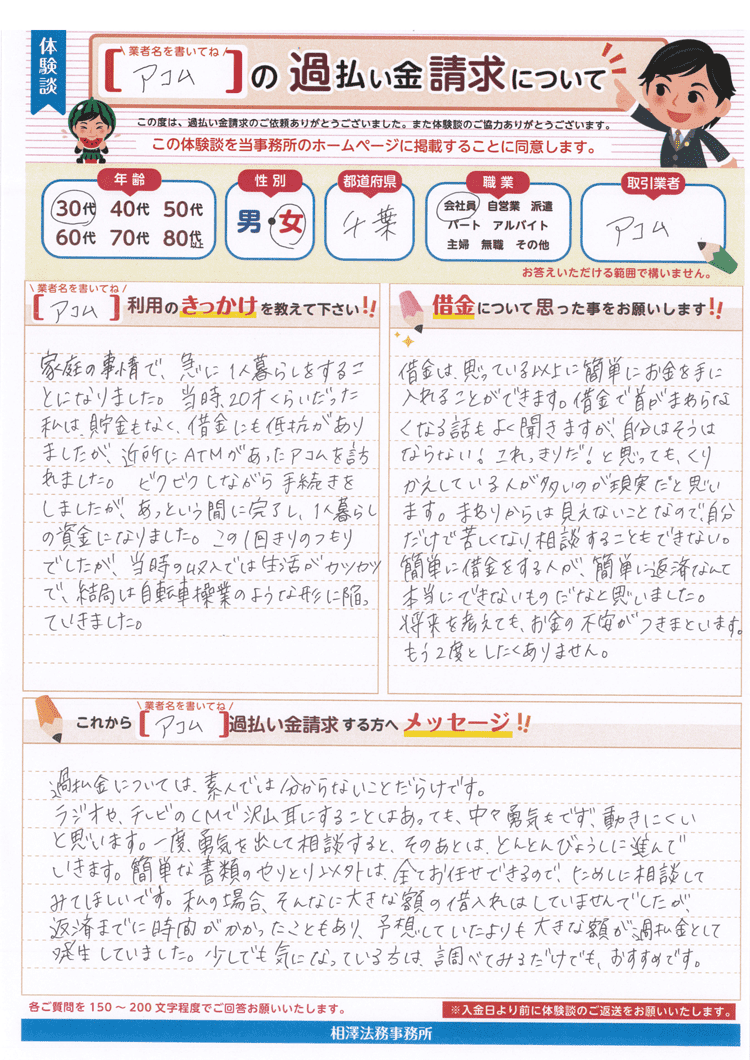 体験談
\ 業者名を書いてね /
[アコム]の過払い金請求について
この度は、過払い金請求のご依頼ありがとうございました。また体験談のご協力ありがとうございます。
この体験談を当事務所のホームページに掲載することに同意します。
年齢
30代 40代 50代
60代 70代 80代以上
性別
男・女
都道府県
千葉
職業
会社員 自営業 派遣
パート アルバイト
主婦 無職 その他
取引業者
アコム
お答えいただける範囲で構いません。
\ 業者名を書いてね /
[アコム]利用のきっかけを教えて下さい!!
家庭の事情で、急に1人暮らしをするこ
とになりました。当時、20才くらいだった
私は、貯金もなく、借金にも低抗があり
ましたが、近所にATMがあったアコムを訪
れました。 ビクビクしながら手続きを
しましたが、あっという間に完了し、1人暮らし
の資金になりました。この1回きりのつもり
でしたが、当時の収入では生活がカツカツ
で、結局は自転車操業のような形に陥っ
ていきました。
借金について思った事をお願いします!!
借金は、思っている以上に簡単にお金を手に
入れることができます。借金で首がまわらな
くなる話もよく聞きますが、自分はそうは
ならない!これっきりだ!と思っても、くり
かえしている人が多いのが現実だと思い
ます。まわりからは見えないことなので、自分
だけで苦しくなり、相談することもできない。
簡単に借金をする人が、簡単に返済なんて
本当にできないものだなと思いました。
将来を考えても、お金の不安がつきまといます。
もう2度としたくありません。
\ 業者名を書いてね /
これから[アコム]過払い金請求する方へメッセージ!!
過払金については、素人では分からないことだらけです。
ラジオや、テレビのCMで沢山耳にすることはあっても、中々勇気もでず、動きにくい
と思います。一度、勇気を出して相談すると、そのあとは、とんとんびょうしに進んで
いきます。簡単な書類のやりとり以外は、全てお任せできるので、ためしに相談して
みてほしいです。私の場合、そんなに大きな額の借入れはしていませんでしたが、
返済までに時間がかかったこともあり、予想していたよりも大きな額が過払金として
発生していました。少しでも気になっている方は、調べてみるだけでも、おすすめです。
各ご質問を150～200文字程度でご回答お願いいたします。
※入金日より前に体験談のご返送をお願いいたします。
相澤法務事務所